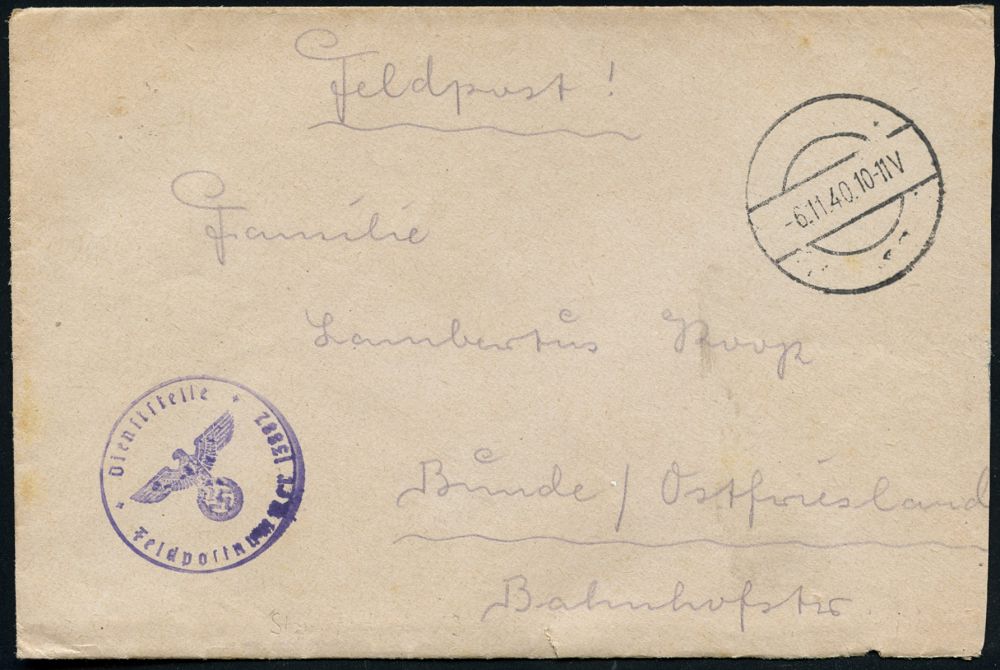 Feldpost!
-6.11.40.10-11V
Familie
Lambertus
Bunde / Ostfriesland
Bahnhofstr.
Dienststelle
Feldpostnummer 13882